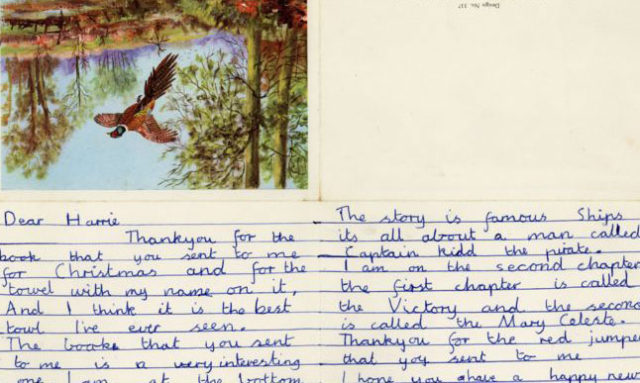 Design No. 337
Dear Harrie
Thankyou for the
book that you sent to me
for Christmas and for the
towel with my name on it,
And I think it is the best
towl I've ever seen.
The booke that you sent
to me is a very interesting
one I am at the bottom
The story is famous Ships
its all about a man called
Captain Kidd the pirate.
I am on the second chapter
the first chapter is called
the Victory and the second
is called the Mary Celeste.
Thankyou for the red jumper
that yoy sent to me
I hope you ahave a happy new